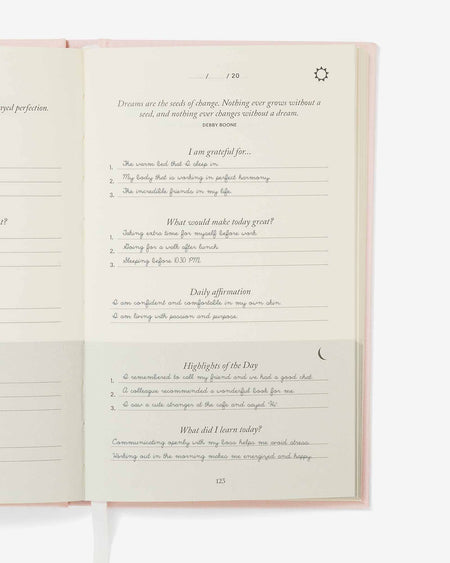 ayed perfection.
t?
/ / 20
Dreams are the seeds of change. Nothing ever grows without a
seed, and nothing ever changes without a dream.
DEBBY BOONE
I am grateful for...
1. The warm bed that I sleep in.
2. My body that is working in perfect harmony.
3. The incredible friends in my life.
What would make today great?
1. Taking extra time for myself before work.
2. Going for a walk after lunch.
3. Sleeping before 10:30 PM.
Daily affirmation
I am confident and comfortable in my own skin.
I am living with passion and purpose.
Highlights of the Day
1. I remembered to call my friend and we had a good chat.
2. A colleague recommended a wonderful book for me.
3. I saw a cute stranger at the cafe and sayed "Hi"
What did I learn today?
Communicating openly with my boss helps me avoid stress.
Working out in the morning makes me energized and happy.
125